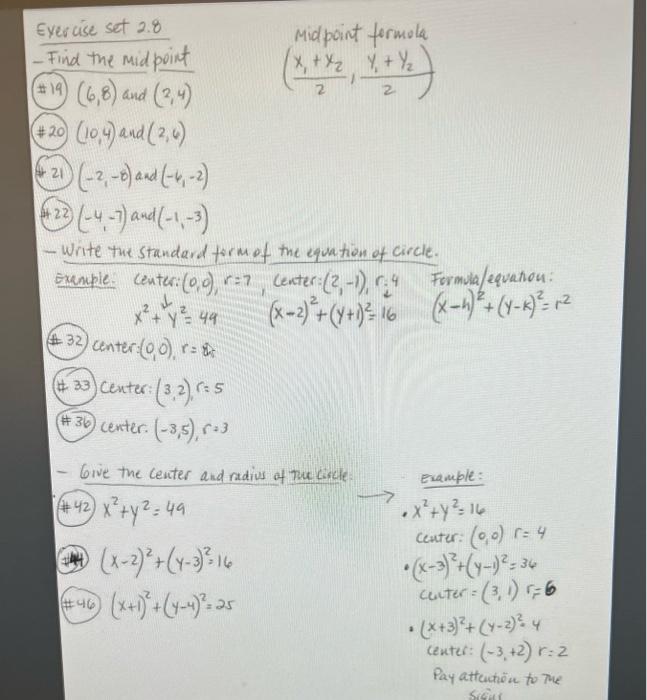 Exercise set 2.8
- Find the midpoint
Midpoint formula
(x₁ + x₂ / 2, y₁ + y₂ / 2)
#19 (6,8) and (2,4)
#20 (10,4) and (2,6)
#21 (-2,-8) and (-6,-2)
#22 (-4,-7) and (-1,-3)
- Write the standard form of the equation of circle.
Example: center:(0,0), r=7, center:(2,-1), r=4
x² + y² = 49 (x-2)² + (y+1)² = 16
Formula/equation:
(x-h)² + (y-k)² = r²
#32 center:(0,0), r=
#33 Center: (3,2), r=5
#36 center: (-3,5), r=3
- Give the center and radius of the circle:
#42 x²+y²=49
#44 (x-2)²+(y-3)²=16
#46 (x+1)²+(y-4)²=25
Example:
→ • x²+y²=16
center: (0,0) r=4
• (x-3)²+(y-1)²=36
center = (3,1) r=6
• (x+3)²+(y-2)²=4
center: (-3,+2) r=2
Pay attention to the
signs